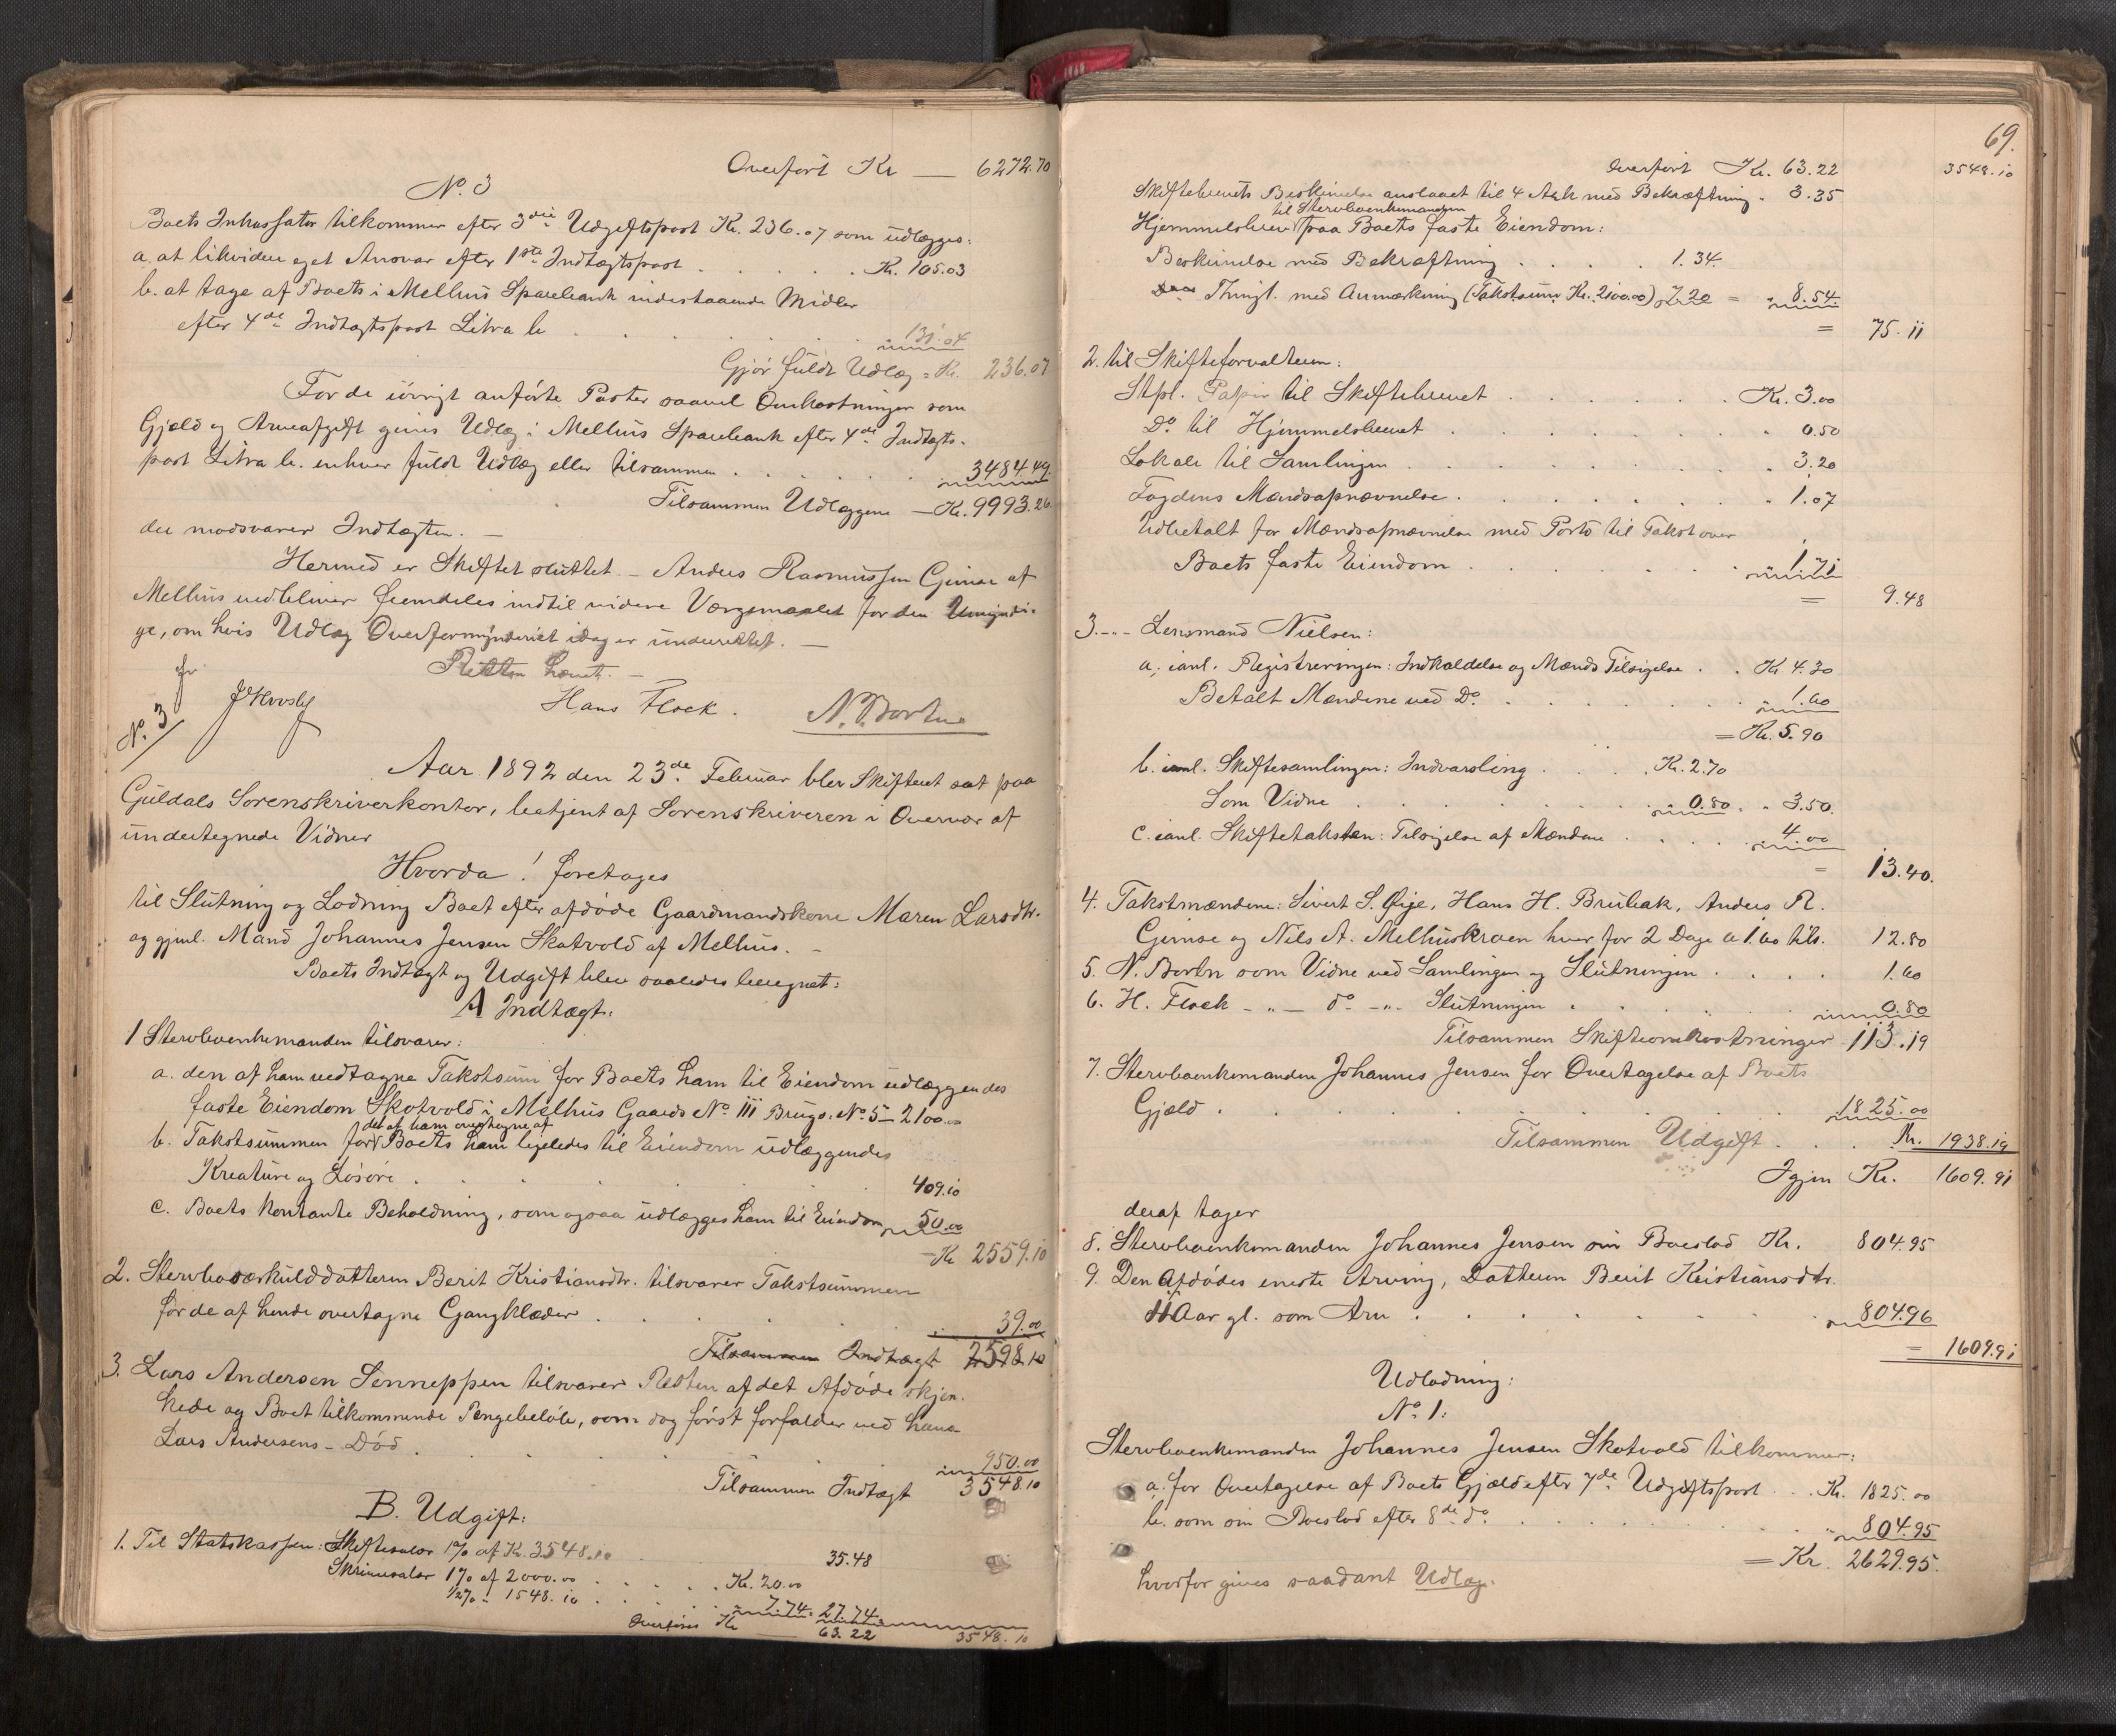 Overført Kr — 6272.70
No. 3
Boets Inkassator tilkommer efter 3die Udgiftspost Kr. 236.07 som udlægges:
a. at likvidere eget Ansvar efter 1ste Indtægtspost . . . . . Kr. 105.03
b. at tage af Boets i Melhus Sparebank indestaaende Midler
efter 4de Indtægtspost Litra b . . . . . 131.04
Gjør fuldt Udlæg = Kr. 236.07
For de øvrigt anførte Poster saavel Omkostninger som
Gjæld og Arveafgift gives Udlæg i Melhus Sparebank efter 4de Indtægts-
post Litra b. enhver fuldt Udlæg eller tilsammen . . . . . 3484.49
Tilsammen Udlæggene — Kr. 9993.26
der modsvarer Indtægten. —
Hermed er Skiftet sluttet. — Anders Rasmussen Gimse af
Melhus vedbliver fremdeles indtil videre Værgemaalet for den Umyndi-
ge, om hvis Udlæg Overformynderiet idag er underrettet. —
Retten hævet. —
Hans Flock. N. Borten
No. 3
Aar 1892 den 23de Februar blev Skifteret sat paa
Guldals Sorenskriverkontor, betjent af Sorenskriveren i Overvær af
undertegnede Vidner
Hvorda! foretages
til Slutning og Lodning Boet efter afdøde Gaardmandskone Maren Larsdtr.
og gjenl. Mand Johannes Jensen Skotvold af Melhus. —
Boets Indtægt og Udgift blev saaledes beregnet:
A Indtægt:
1 Stervboenkemanden tilsvarer:
a. den af ham vedtagne Takstsum for Boets ham til Eiendom udlæggendes
faste Eiendom Skotvold i Melhus Gaards No. 111 Brugs. No. 5 — 2100.00
det af ham overtagne af
b. Takstsummen for Boets ham ligeledes til Eiendom udlæggendes
Kreature og Løsøre . . . . . 409.10
c. Boets kontante Beholdning, som ogsaa udlægges ham til Eiendom 50.00
— Kr 2559.10
2. Stervboesærkulddatteren Berit Kristiansdtr. tilsvarer Takstsummen
for de af hende overtagne Gangklæder . . . . . 39.00
Tilsammen Indtægt 2598.10
3. Lars Andersen Senneppen tilsvarer Resten af det Afdøde skjæn-
kede og Boet tilkommende Pengebeløb, som dog først forfalder ved hans
Lars Andersens — Død . . . . . 950.00
Tilsammen Indtægt 3548.10
B. Udgift:
1. Til Statskassen: Skiftesalær 1% af Kr. 3548.10 35.48
Skriversalær 1% af 2000.00 . . . . Kr. 20.00
1/2% " 1548.10 . . . . 7.74 = 27.74
Overføres Kr 63.22 3548.10
69.
Overført Kr. 63.22 3548.10
Skiftebrevets Beskrivelse anslaaet til 4 Ark med Bekræftning . 3.35
til Stervboenkemanden
Hjemmelsbrev paa Boets faste Eiendom:
Beskrivelse med Bekræftning . . . . 1.34.
Thingl. med Anmærkning (Takstsum Kr. 2100.00) 7.20 = 8.54.
= 75.11
2. til Skifteforvalteren:
Stpl. Papir til Skiftebrevet . . . . . Kr. 3.00
Do. til Hjemmelsbrevet . . . . . 0.50
Lokale til Samlingen . . . . . 3.20
Fogdens Mændsopnævnelse . . . . . 1.07
Udbetalt for Mændsopnævnelse med Porto til Takst over
Boets faste Eiendom . . . . . 1.71
= 9.48
3. -"- Lensmand Nielsen:
a. ianl. Registreringen: Indkaldelse og Mænds Tilsigelse . . Kr 4.30
Betalt Mændene ved Do. . . . . . 1.60
= Kr. 5.90
b. ianl. Skiftesamlingen: Indvarsling . . . . Kr. 2.70
Som Vidne . . . . . 0.80 . " 3.50.
c. ianl. Skiftetaksten: Tilsigelse af Mændene . . . . 4.00
= 13.40.
4. Takstmændene: Sivert S. Øije, Hans H. Brubak, Anders R.
Gimse og Nils A. Melhuskroen hver for 2 Dage a 1.60 tils. 12.80
5. N. Borten som Vidne ved Samlingen og Slutningen . . . . 1.60
6. H. Flock -"- do -"- Slutningen . . . . 0.80
Tilsammen Skifteomkostninger 113.19
7. Stervboenkemanden Johannes Jensen for Overtagelse af Boets
Gjæld . . . . . 1825.00
Tilsammen Udgift . . . . Kr. 1938.19
Igjen Kr. 1609.91
deraf tager
8. Stervboenkemanden Johannes Jensen sin Boeslod Kr. 804.95
9. Den Afdødes eneste Arving, Datteren Berit Kristiansdtr.
Aar gl. som Arv . . . . . 804.96
= 1609.91
Udlodning:
No. 1:
Stervboenkemanden Johannes Jensen Skotvold tilkommer:
a. for Overtagelse af Boets Gjæld efter 7de Udgiftspost . . . Kr. 1825.00
b. som sin Boeslod efter 8de do. . . . . . 804.95
= Kr. 2629.95.
hvorfor gives saadant Udlæg.